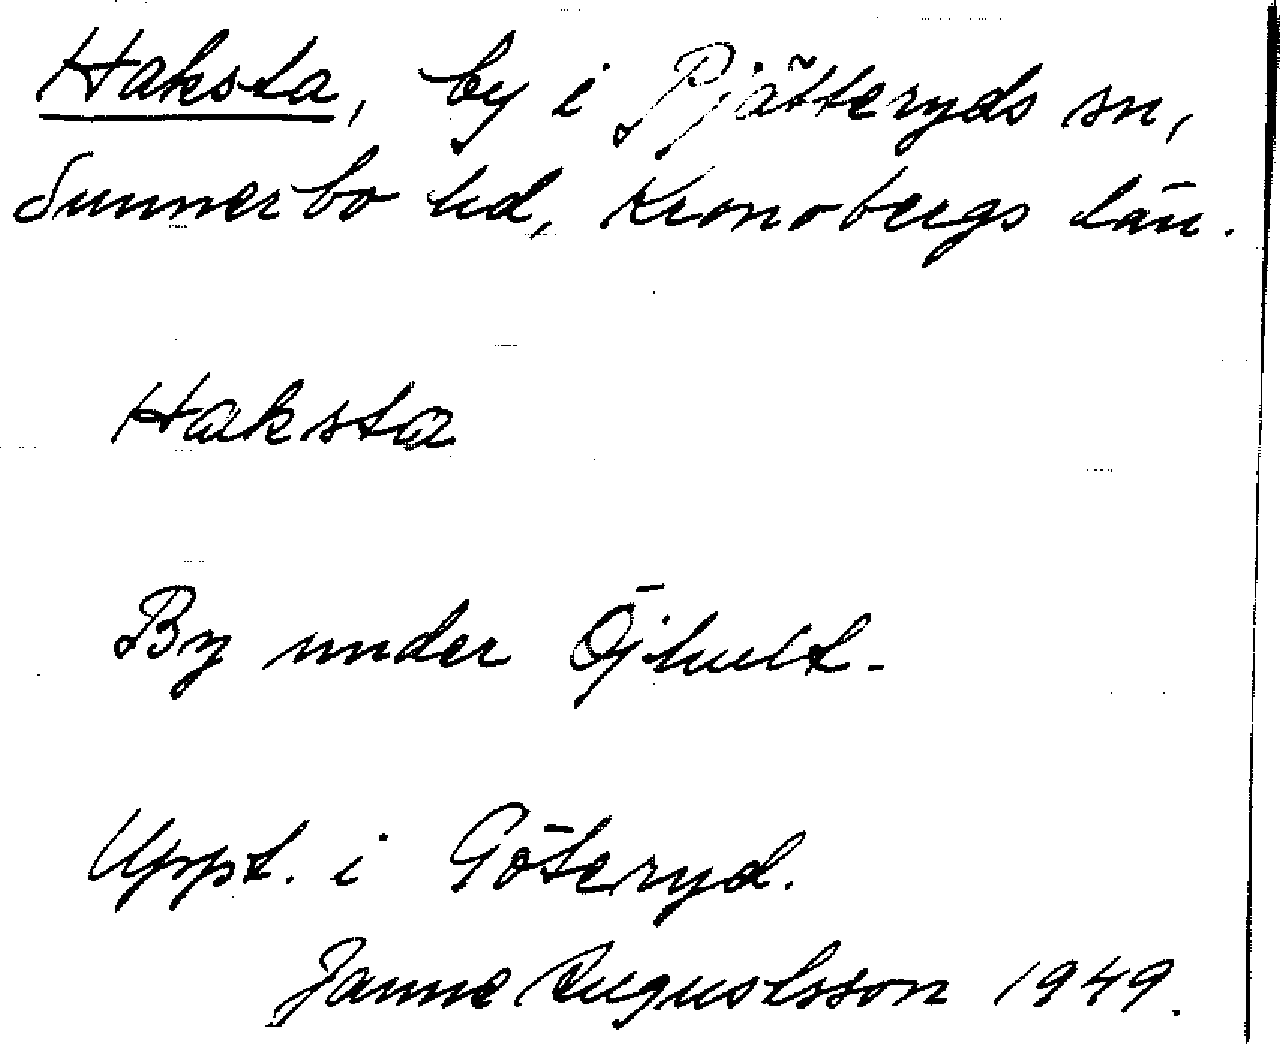 Haksta, by i Pjätteryds sn,
Sunnerbo hd, Kronobergs län.
Haksta
By under Öjhult.
Uppt. i Göteryd.
Janne Augustsson 1949.